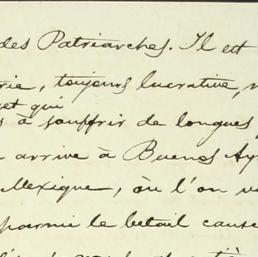 des Patriarches. Il est
rie, toujours lucrative,
et qui
à souffrir de longues
arrive à Buenos Ay
Mexique, où l'on
parmi le betail cause